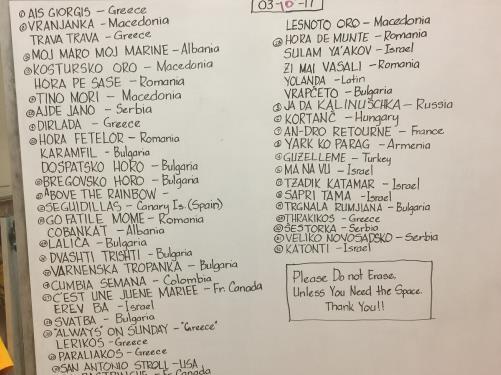 AIS GIORGIS - Greece
VRANJANKA - Macedonia
TRAVA TRAVA - Greece
MOJ MARO MOJ MARINE - Albania
KOSTURSKO ORO - Macedonia
HORA PE SASE - Romania
TINO MORI - Macedonia
AJDE JANO - Serbia
DIRLADA - Greece
HORA FETELOR - Romania
KARAMFIL - Bulgaria
DOSPATSKO HORO - Bulgaria
BREGOVSKO HORO - Bulgaria
ABOVE THE RAINBOW -
SEGUIDILLAS - Canary Is. (Spain)
GO FATILE MOME - Romania
COBANKAT - Albania
LALIČA - Bulgaria
DVASHTI TRISHTI - Bulgaria
VARNENSKA TROPANKA - Bulgaria
CUMBIA SEMANA - Colombia
C'EST UNE JUENE MARIEE - Fr. Canada
EREV BA - Israel
SVATBA - Bulgaria
"ALWAYS" ON SUNDAY - "Greece"
LERIKOS - Greece
PARALIAKOS - Greece
SAN ANTONIO STROLL - USA
- Fr. Canada
03-10-17
LESNOTO ORO - Macedonia
HORA DE MUNTE - Romania
SULAM YA'AKOV - Israel
ZI MAI VASALI - Romania
YOLANDA - Latin
VRAPČETO - Bulgaria
JA DA KALINUSCHKA - Russia
KORTANČ - Hungary
AN-DRO RETOURNE - France
YARK KO PARAG - Armenia
GUZELLEME - Turkey
MA NA VU - Israel
TZADIK KATAMAR - Israel
SAPRI TAMA - Israel
TRGNALA RUMJIANA - Bulgaria
THRAKIKOS - Greece
ŠESTORKA - Serbia
VELIKO NOVOSADSKO - Serbia
KATONTI - Israel
Please Do not Erase,
Unless You Need the Space.
Thank You!!